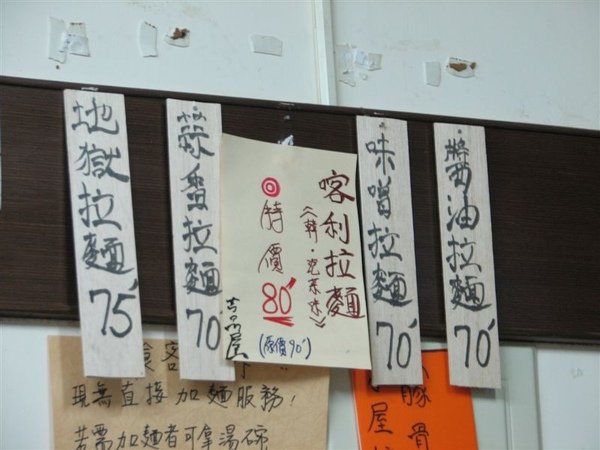 地獄拉麵 75
拉麵 70
喀利拉麵
《韓·泡菜味》
◎特價 80
(原價90)
味噌拉麵 70
醬油拉麵 70
食客
現無直接加麵服務!
若需加麵者可拿湯碗
豚骨
屋